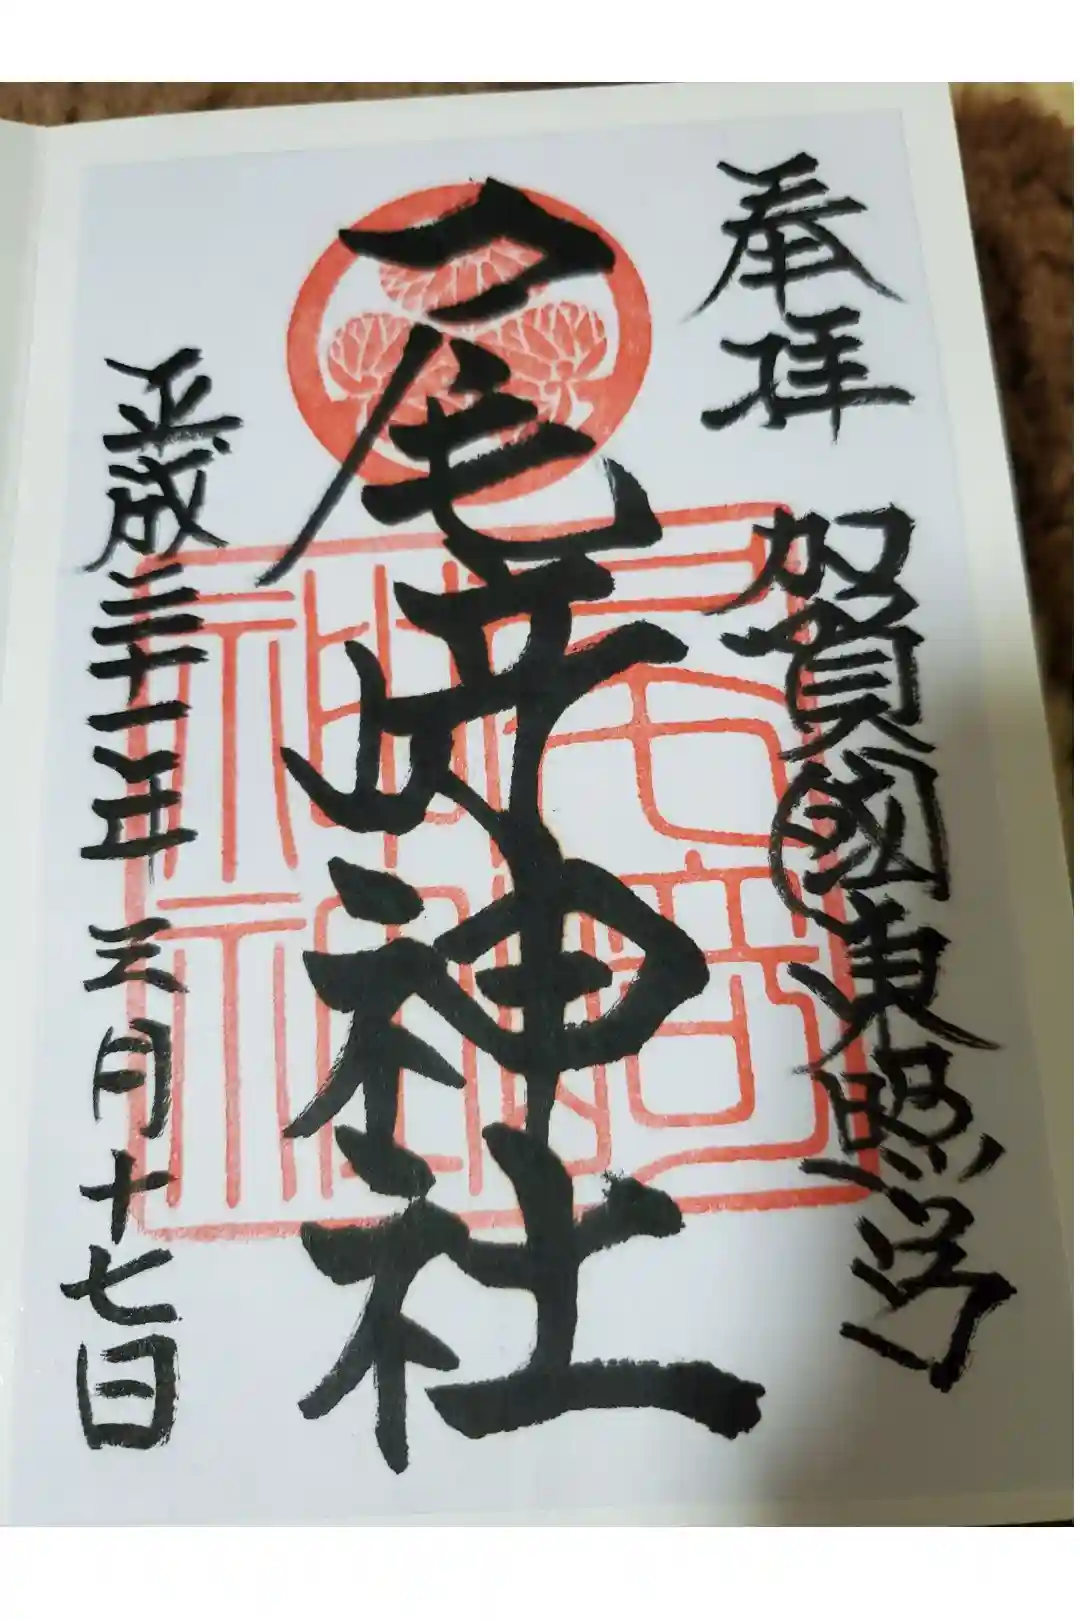 奉拝
加賀國東照宮
尾崎神社
平成三十一年三月十七日